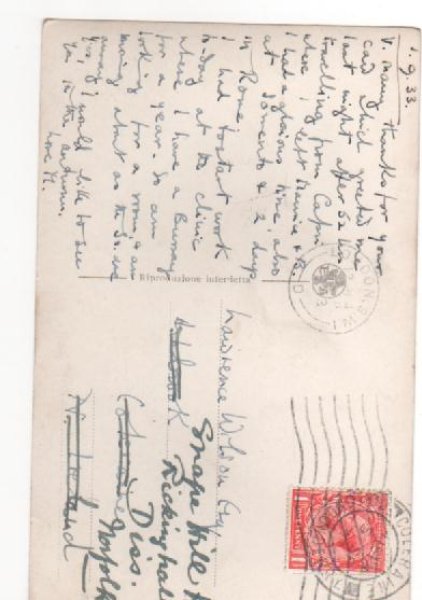 1.9.33.
V. many thanks for your
card which greeted me
last night after 52 hrs
travelling from Capri
where I left
I had a glorious time, also
at Sorrento & 2 days
in Rome.
I had to start work
to-day at the clinic
where I have a Bursary
for a year. So am
looking for a room & am
moving about as the
away. I would like to see
you in the autumn.
Love
Riproduzione interdetta
LONDON. N.W.1
Lawrence Wilson Esq
Snape Hill
Rickinghall
Diss.
Norfolk
N. Ireland
COLERAINE